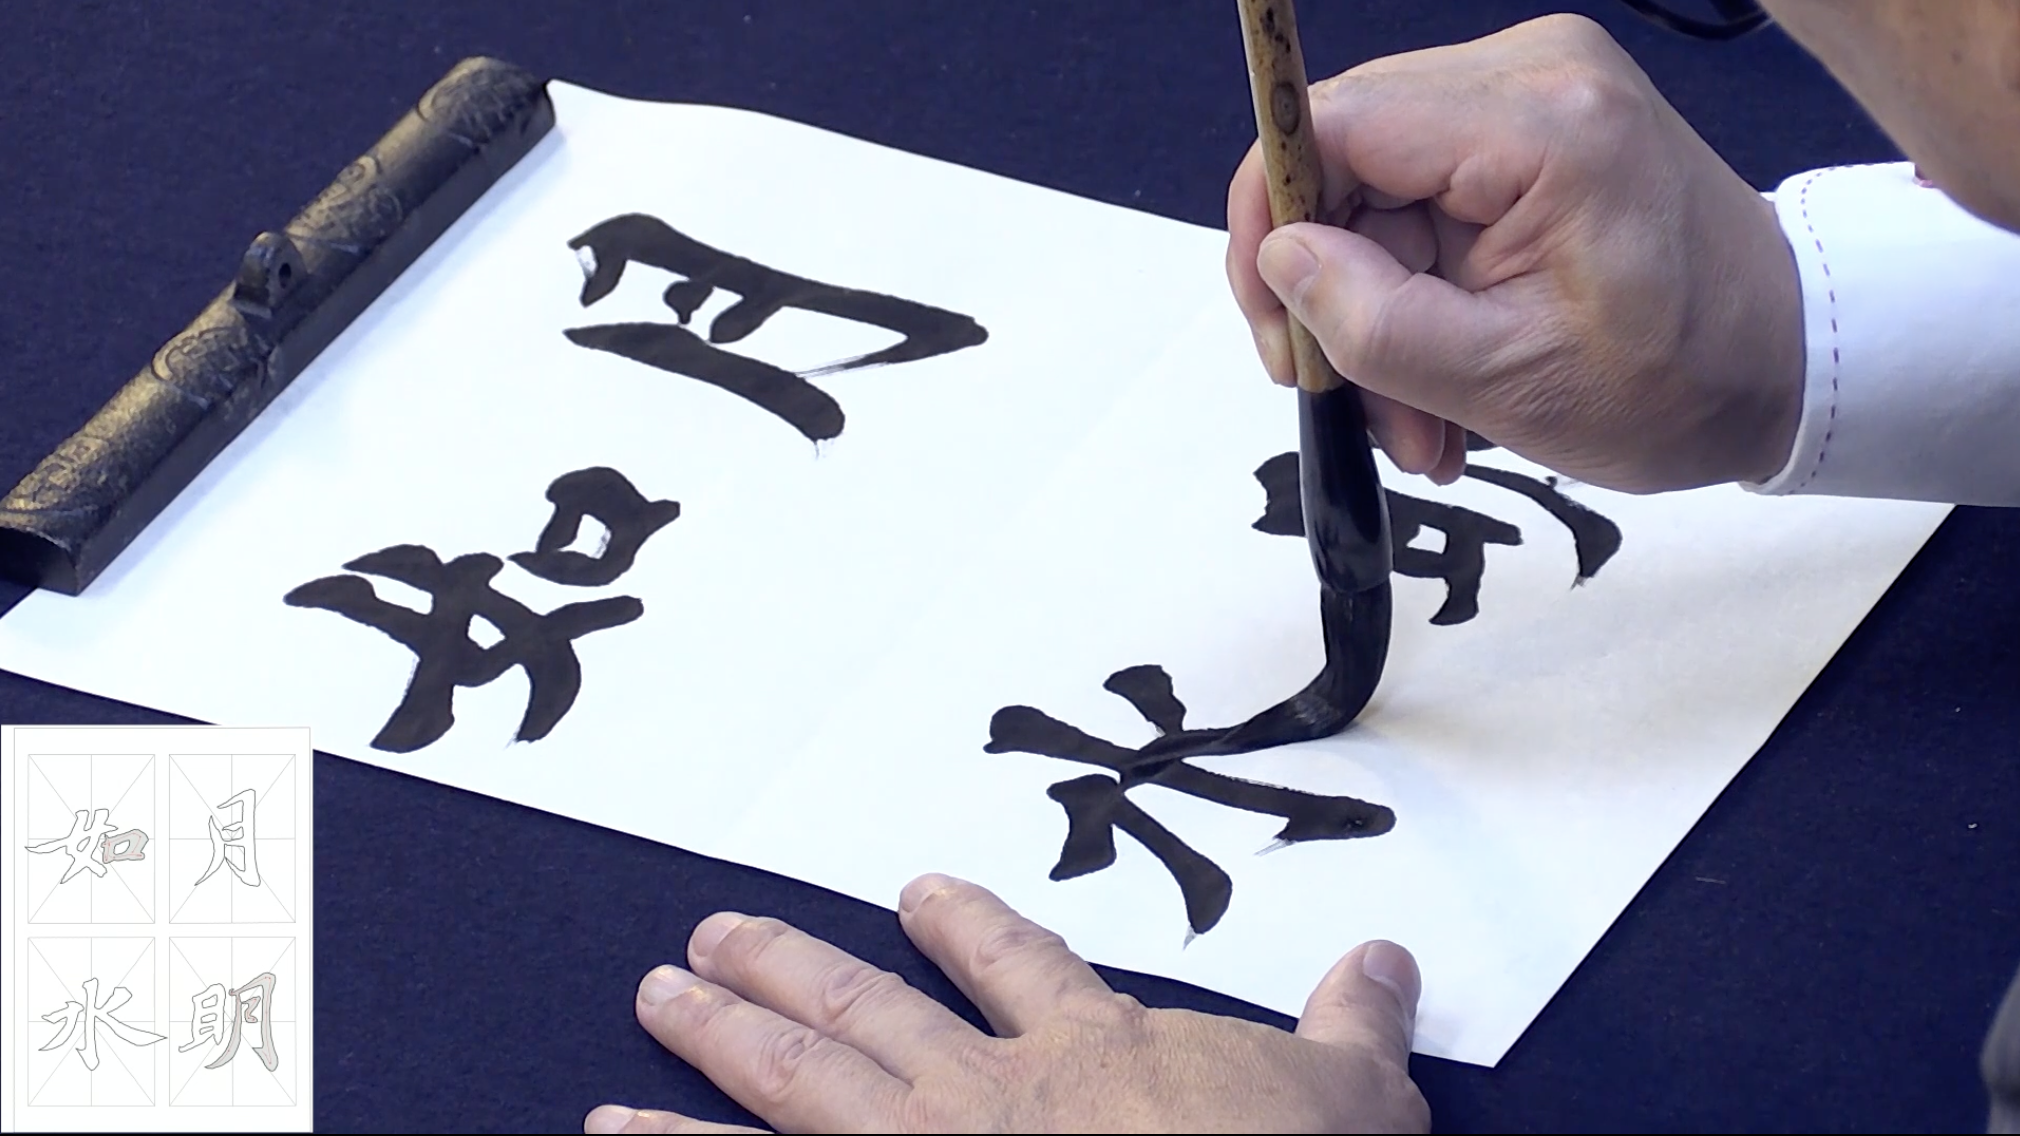 月明
如水
月明
如水